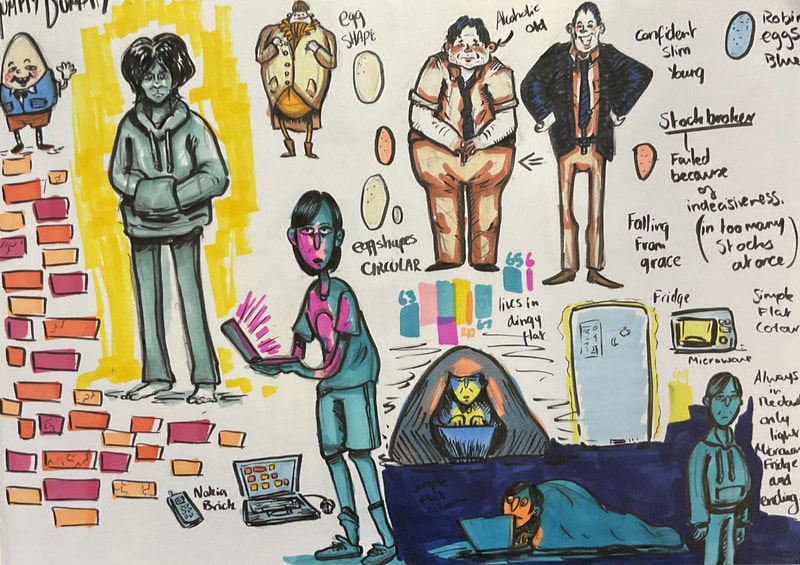 HUMPTY DUMPTY
egg
SHAPE
Alcoholic
old
Confident
Slim
Young
Robin
eggs
Blue
Stockbroker
Failed
because
of
indecisiveness.
(in too many
Stocks
at once)
Falling
From
grace
egg shapes
CIRCULAR
63
65
6
40
67
lives in
dingy
flat
Fridge
Microwave
49
Simple
Flat
Colour
Always
in
only
light
Microwave
Fridge
and
ending
Nokia
Brick
Simple
Flat
Colour